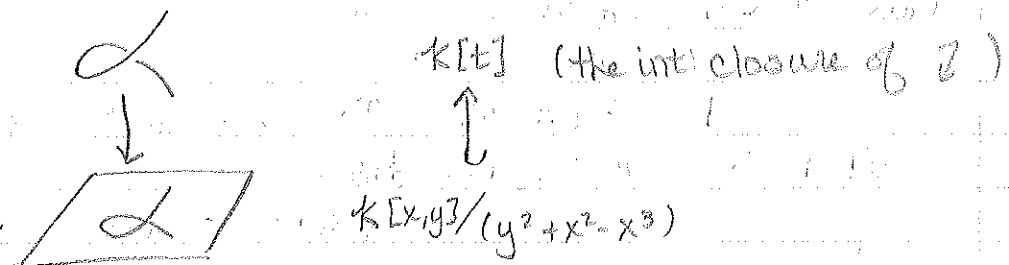 k[t] (the int. closure of ↓)
k[x,y]/(y²+x²-x³)